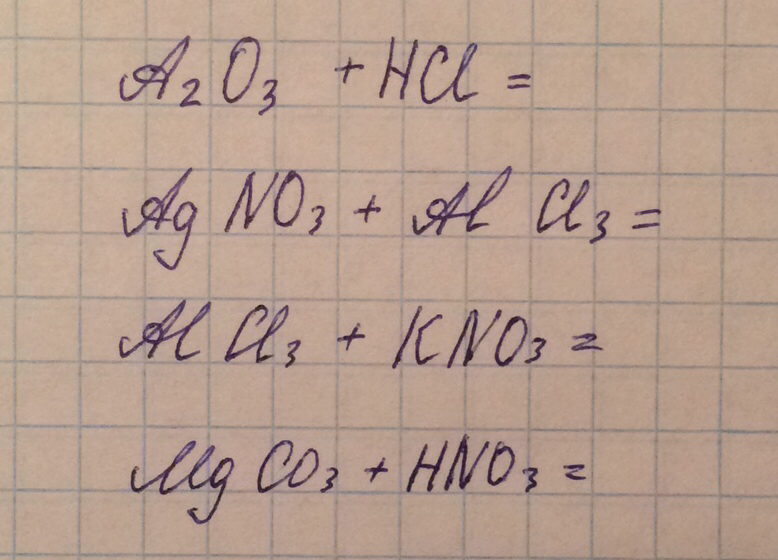 A₂O₃ + HCl =
AgNO₃ + AlCl₃ =
AlCl₃ + KNO₃ =
MgCO₃ + HNO₃ =